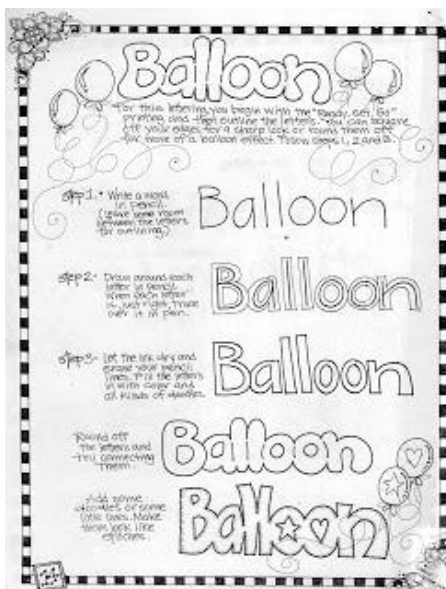 Balloon
For this lettering, you begin with the "Ready, Set, Go"
printing and then outline the letters. You can square
off your edges for a sharp look or round them off
for more of a balloon effect. Follow steps 1, 2 and 3.
step 1. • Write a word
in pencil.
(Leave some room
between the letters
for outlining.)
Balloon
step 2 - Draw around each
letter in pencil.
When each letter
is just right, trace
over it in pen.
Balloon
step 3 - Let the ink dry and
erase your pencil
lines. Fill the letters
in with color and
all kinds of doodles.
Balloon
Round off
the letters and
try connecting
them.
Balloon
Add some
doodles or some
little lines. Make
them look like
stitches.
Balloon